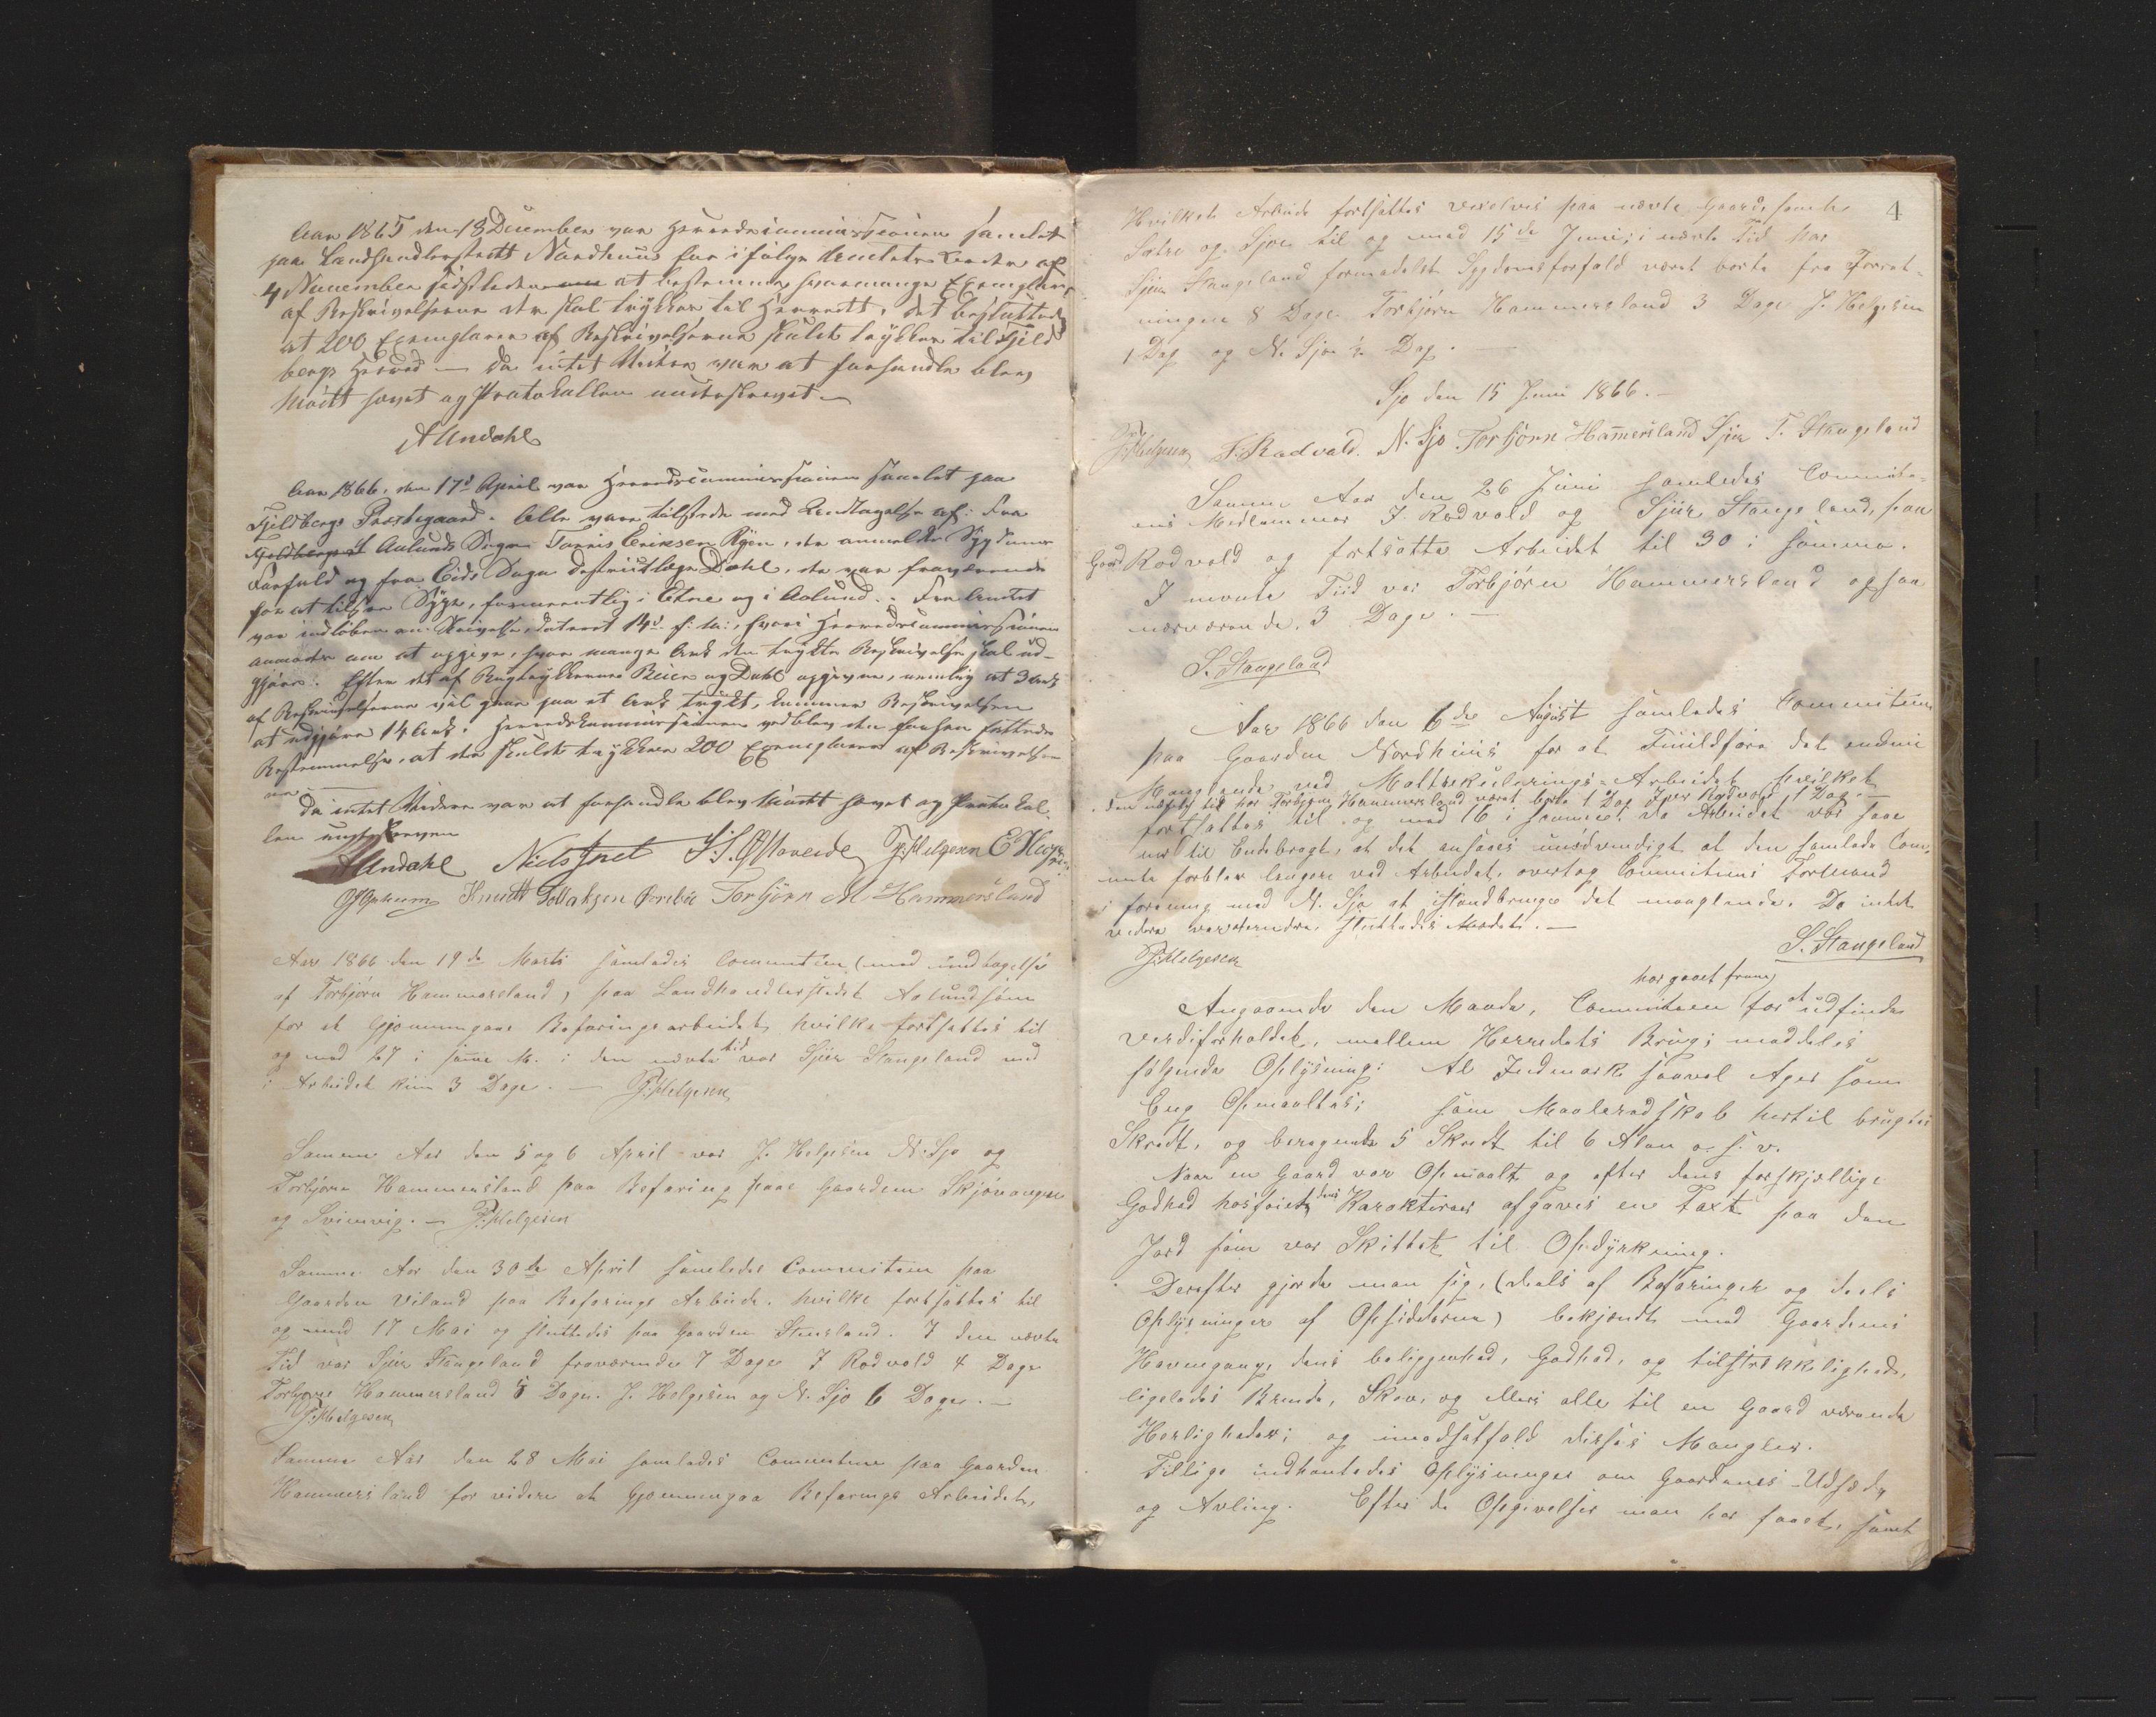 Aar 1865 den 13 December var Herredscommissionen samlet
paa Landhandlerstedt Nordhuus for i følge Amtets Ordre af
4 November sidstleden at bestemme hvormange Exemplarer
af Beskrivelserne der skal trykkes til Herredt. Det besluttedes
at 200 Exemplarer af Beskrivelserne skulde trykkes til Fjeld
bergs Herred — Da intet Videre var at forhandle blev
Mødet hævet og Protokollen underskrevet. —
A Undahl
Aar 1866, den 17d April var Herredscommissionen samlet paa
Fjeldbergs Præstegaard. Alle vare tilstede med Undtagelse af: Fra
Aalunds Sogn Tørris Eriksen Ryen, der anmeldte Sygdoms
Forfald og fra Eids Sogn Destriktlæge Dahl, der var fraværende
for at tilsee Syge, formeentlig i Etne og i Aalund. Fra Amtet
var indløben en Skrivelse, dateret 14d f: M:, hvori Herredscommissionen
anmodes om at opgive, hvor mange Ark den trykte Beskrivelse skal ud-
gjøre. Efter det af Bogtrykkerne Beier og Dahl opgivne, nemlig at 3 Ark
af Beskrivelserne vil gaae paa et Ark trykt, kommer Beskrivelsen
at udgjøre 14 Ark. Herredskommissionen vedblev den forhen fattede
Bestemmelse, at der skulde trykkes 200 Exemplarer af Beskrivelsen
Da intet Videre var at forhandle blev Mødet hævet og Protokol-
len underskreven
A Undahl Niels J. S. Ø J. Helgesen E
Knudt Torbjørn M Hammersland
Aar 1866 den 19de Marts samledes Committeen (med undtagelse
af Torbjørn Hammersland) paa Landhandlerstedet Aalund som
for at Gjennemgaae Befaringsarbeidet, hvilke fortsattes til
og med 27 i samme M. i den nævte tid var Sjur Stangeland med
i Arbeidet kun 3 Dage. — J. Helgesen
Samme Aar den 5 og 6 April var J. Helgesen N. Sjo og
Torbjørn Hammersland paa Befaring paa Gaardene Skjønanger
og Svinvig. — J. Helgesen
Samme Aar den 30de April samledes Committeen paa
Gaarden Viland paa Befarings Arbeide. hvilke fortsattes til
og med 17 Mai og sluttedes paa Gaarden Stensland. I den nævte
Tid var Sjur Stangeland fraværende 7 Dage I Rødvold 4 Dage
Torbjørn Hammersland 5 Dage. J. Helgesen og N. Sjo 6 Dage. —
J. Helgesen
Samme Aar den 28 Mai samledes Committeen paa Gaarden
Hammersland for videre at Gjennemgaa Befarings Arbeidet,
4
Hvilket Arbeide fortsattes paa nævte Gaard, samt
Sætre og Sjoe til og med 15de Juni; i nævte Tid har
Sjur Stangeland formedelst Sygdomsforfald været borte fra Forret-
ningen 8 Dage Torbjørn Hammersland 3 Dage J. Helgesen
1 Dag og N. Sjo ½ Dag. —
Sjo den 15 Juni 1866. —
J. Helgesen I. Rødvold. N. Sjo Torbjørn Hammersland Sjur T. Stangeland
Samme Aar den 26 Juni samledes Committe-
ens Medlemmer I Rødvold og Sjur Stangeland, paa
Gaard Rødvold og fortsatte Arbeidet til 30 i samme.
I nævnte Tiid var Torbjørn Hammersland ogsaa
nærværende 3 Dage. —
S. Stangeland
Aar 1866 den 6de August samledes Committeen
paa Gaarden Nordhuus for at Fuildføre det endnu
Manglende ved Mattrikulerings-Arbeidet, hvilket
den nævte tid har Torbjørn Hammersland været borte 1 Dag Iver Rødvold 1 Dag. —
fortsattes til og med 16 i samme. da Arbeidet var saa
nær til Endebragt, at det ansaaes unødvendigt at den samlede Com-
mete forblev lengere ved Arbeidet, overtog Committeens Formand
i forening med N. Sjo at istandbringe det manglende. Da intet
videre var sluttedes Mødet. —
J. Helgesen S. Stangeland
har gaaet frem
Angaaende den Maade, Committeen for at udfinde
Verdiforholdet, mellem Herredets Brug; meddeles
følgende Oplysning: Al Indmark saavel Ager som
Eng Opmaaltes; som Maaleredskab hertil brugtes
Skredt, og beregnede 5 Skredt til 6 Alen o. s. v.
Naar en Gaard var Opmaalt og efter dens forskjellige
Godhed hosføiet dens Karakterer afgaves en Taxt paa den
Jord som var Skikket til Opdyrkning.
Derefter gjorde man sig, (deels af Befaringer og deels
Oplysninger af Opsidderne) bekjendt med Gaardens
Havnegang, dens beliggenhed, Godhed, og tilstrekkelighed,
ligeledes Brende, Skov, og ellers alle til en Gaard værende
Herligheder; og imodsatfald disses Mangler.
Tillige indhentedes Oplysninger om Gaardenes Udsæd,
og Avling. Efter de Opgivelser man har faaet, samt